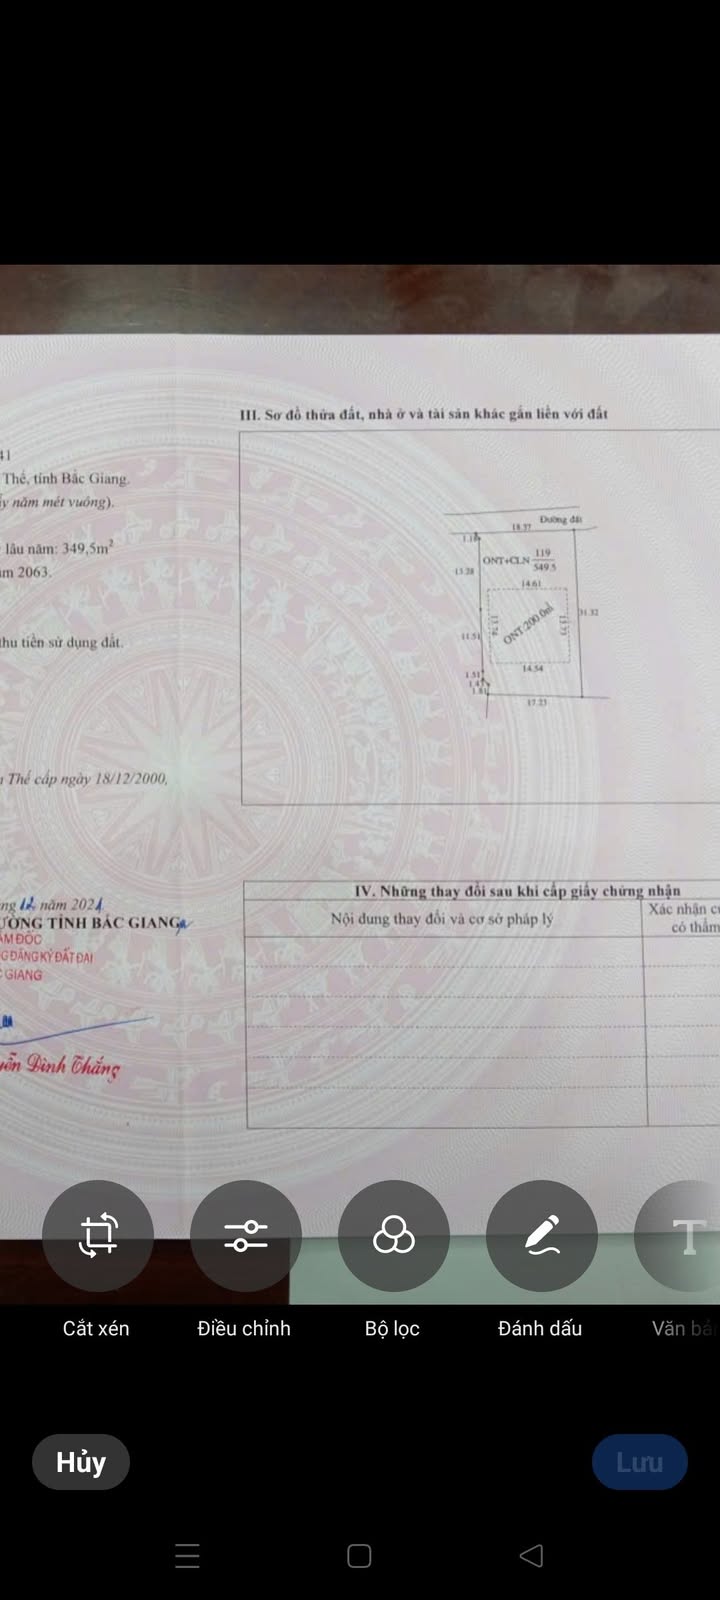 III. Sơ đồ thửa đất, nhà ở và tài sản khác gắn liền với đất
41
Thế, tỉnh Bắc Giang.
năm mét vuông).
lâu năm: 349,5m²
2063.
thu tiền sử dụng đất.
Thế cấp ngày 18/12/2000,
Đường đất
18.37
1.18
ONT+CLN 119
549.5
13.28
14.61
31.32
ONT:200.0m²
13.74
13.73
11.51
14.54
1.51
17.23
12 năm 2021
TỈNH BẮC GIANG
ĐĂNG KÝ ĐẤT ĐAI
GIANG
Đình Thắng
IV. Những thay đổi sau khi cấp giấy chứng nhận
Nội dung thay đổi và cơ sở pháp lý
Xác nhận
có thẩm
Cắt xén
Điều chỉnh
Bộ lọc
Đánh dấu
Văn
Hủy
Lưu